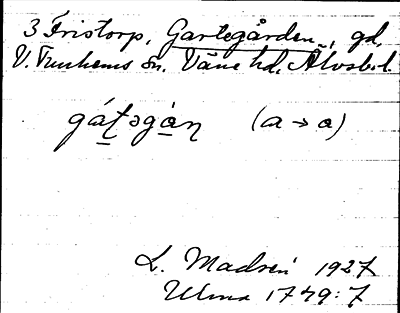 3 Fristorp, Gartegården, gd,
V. Tunhems sn. Väne hd. Älvsb.l.
gát̠əgȧ̠ɳ (a → a)
L. Madsén 1927
Ulma 1779:7